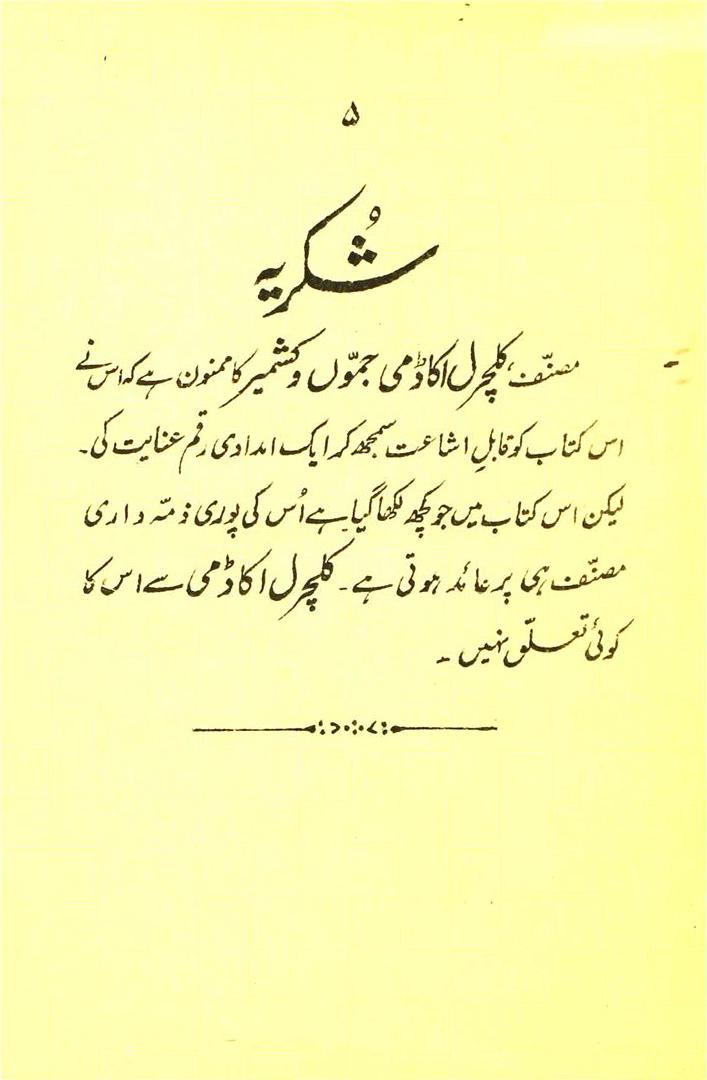 ۵
شُکریہ
مصنّف، کلچرل اکاڈمی جمّوں و کشمیر کا ممنون ہے کہ اس نے
اس کتاب کو قابلِ اشاعت سمجھ کر ایک امدادی رقم عنایت کی۔
لیکن اس کتاب میں جو کچھ لکھا گیا ہے اُس کی پوری ذمّہ داری
مصنّف ہی پر عائد ہوتی ہے۔ کلچرل اکاڈمی سے اس کا
کوئی تعلّق نہیں۔